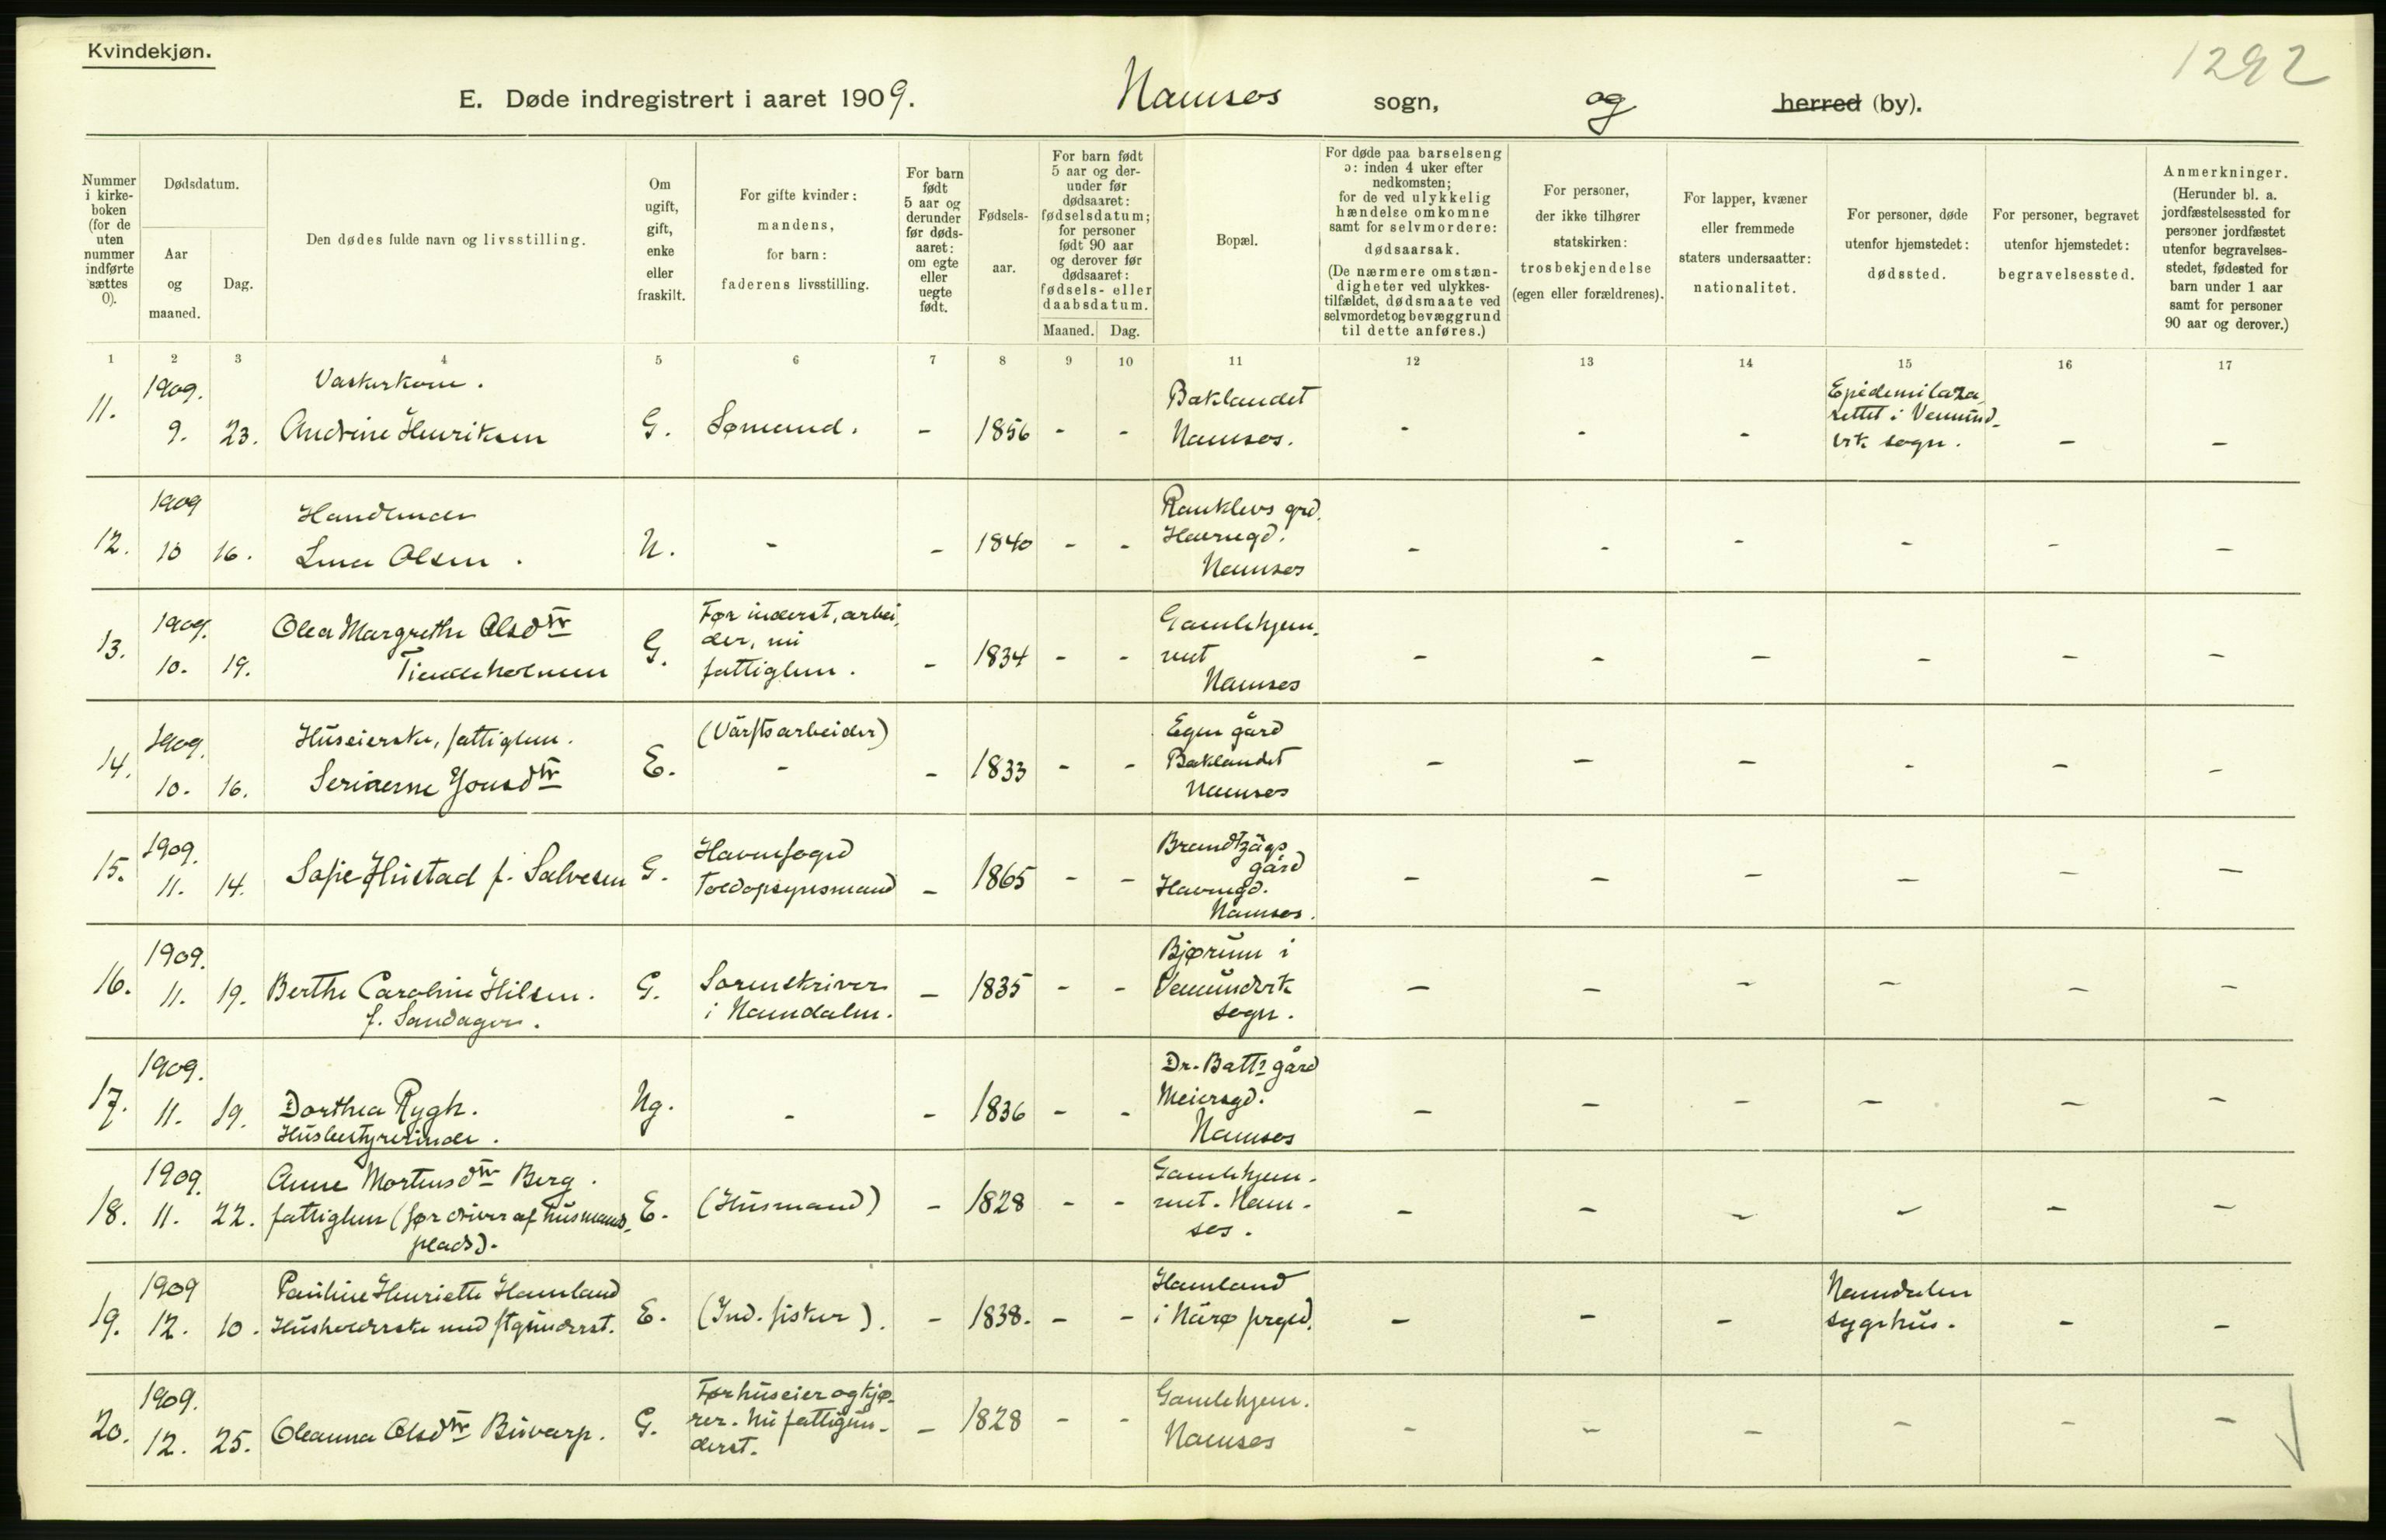 Kvindekjøn.
1292
E. Døde indregistrert i aaret 1909. Namsos sogn, og herred (by).
Nummer i kirke-boken (for de uten nummer indførte sættes 0).
Dødsdatum.
Aar og maaned.
Dag.
Den dødes fulde navn og livsstilling.
Om ugift, gift, enke eller fraskilt.
For gifte kvinder: mandens, for barn: faderens livsstilling.
For barn født 5 aar og derunder før døds-aaret: om egte eller uegte født.
Fødsels-aar.
For barn født 5 aar og der-under før dødsaaret: fødselsdatum; for personer født 90 aar og derover før dødsaaret: fødsels- eller daabsdatum.
Maaned. Dag.
Bopæl.
For døde paa barselseng ɔ: inden 4 uker efter nedkomsten; for de ved ulykkelig hændelse omkomne samt for selvmordere: dødsaarsak. (De nærmere omstæn-digheter ved ulykkes-tilfældet, dødsmaate ved selvmordet og bevæggrund til dette anføres.)
For personer, der ikke tilhører statskirken: trosbekjendelse (egen eller forældrenes).
For lapper, kvæner eller fremmede staters undersaatter: nationalitet.
For personer, døde utenfor hjemstedet: dødssted.
For personer, begravet utenfor hjemstedet: begravelsessted.
Anmerkninger. (Herunder bl. a. jordfæstelsessted for personer jordfæstet utenfor begravelses-stedet, fødested for barn under 1 aar samt for personer 90 aar og derover.)
1 2 3 4 5 6 7 8 9 10 11 12 13 14 15 16 17
11. 1909. 9. 23. Vaskerkone. Andrine Henriksen G. Sømand. - 1856 - - Baklandet Namsos. - - - Epidemilaza-rettet i Vemund-vik sogn. - -
12. 1909 10 16. Handlende Lina Olsen. U. - - 1840 - - Ranklevs grd. Havnegd. Namsos - - - - - -
13. 1909. 10. 19. Olea Margrethe Olsdtr Tiendeholmen G. Før inderst, arbei-der, nu fattiglem. - 1834 - - Gamlehjem-met Namsos - - - - - -
14. 1909. 10. 16. Huseierske, fattiglem. Serianne Jonsdtr E. (Värftsarbeider) - - 1833 - - Egen gård Baklandet Namsos - - - - - -
15. 1909. 11. 14. Sofie Hustad f. Salvesen G. Havnefoged Toldopsynsmand - 1865 - - Brandtzægs gård Havnegd. Namsos. - - - - - -
16. 1909. 11. 19. Berthe Caroline Nilsen. f. Sandager. G. Sorenskriver i Namdalen. - 1835 - - Bjørum i Vemundvik sogn. - - - - - -
17. 1909. 11. 19. Dorthea Rygh. Husbestyrerinde. Ug. - - 1836 - - Dr. Batts gård Meiersgd. Namsos - - - - - -
18. 1909. 11. 22. Anne Mortensdtr Berg. fattiglem (før driver af husmands-plads). E. (Husmand) - 1828 - - Gamlehjem-met. Nam-sos. - - - - - -
19. 1909 12. 10. Pauline Henriette Hamland Husholderske med ftgunderst. E. (Ind. fisker). - 1838. - - Hamland i Närø prgjd. - - - Namdalen sygehus. - -
20. 1909. 12. 25. Oleanna Olsdtr Buvarp. G. Før huseier og kjø-rer. Nu fattigun-derst. - 1828 - - Gamlehjem. Namsos - - - - - -